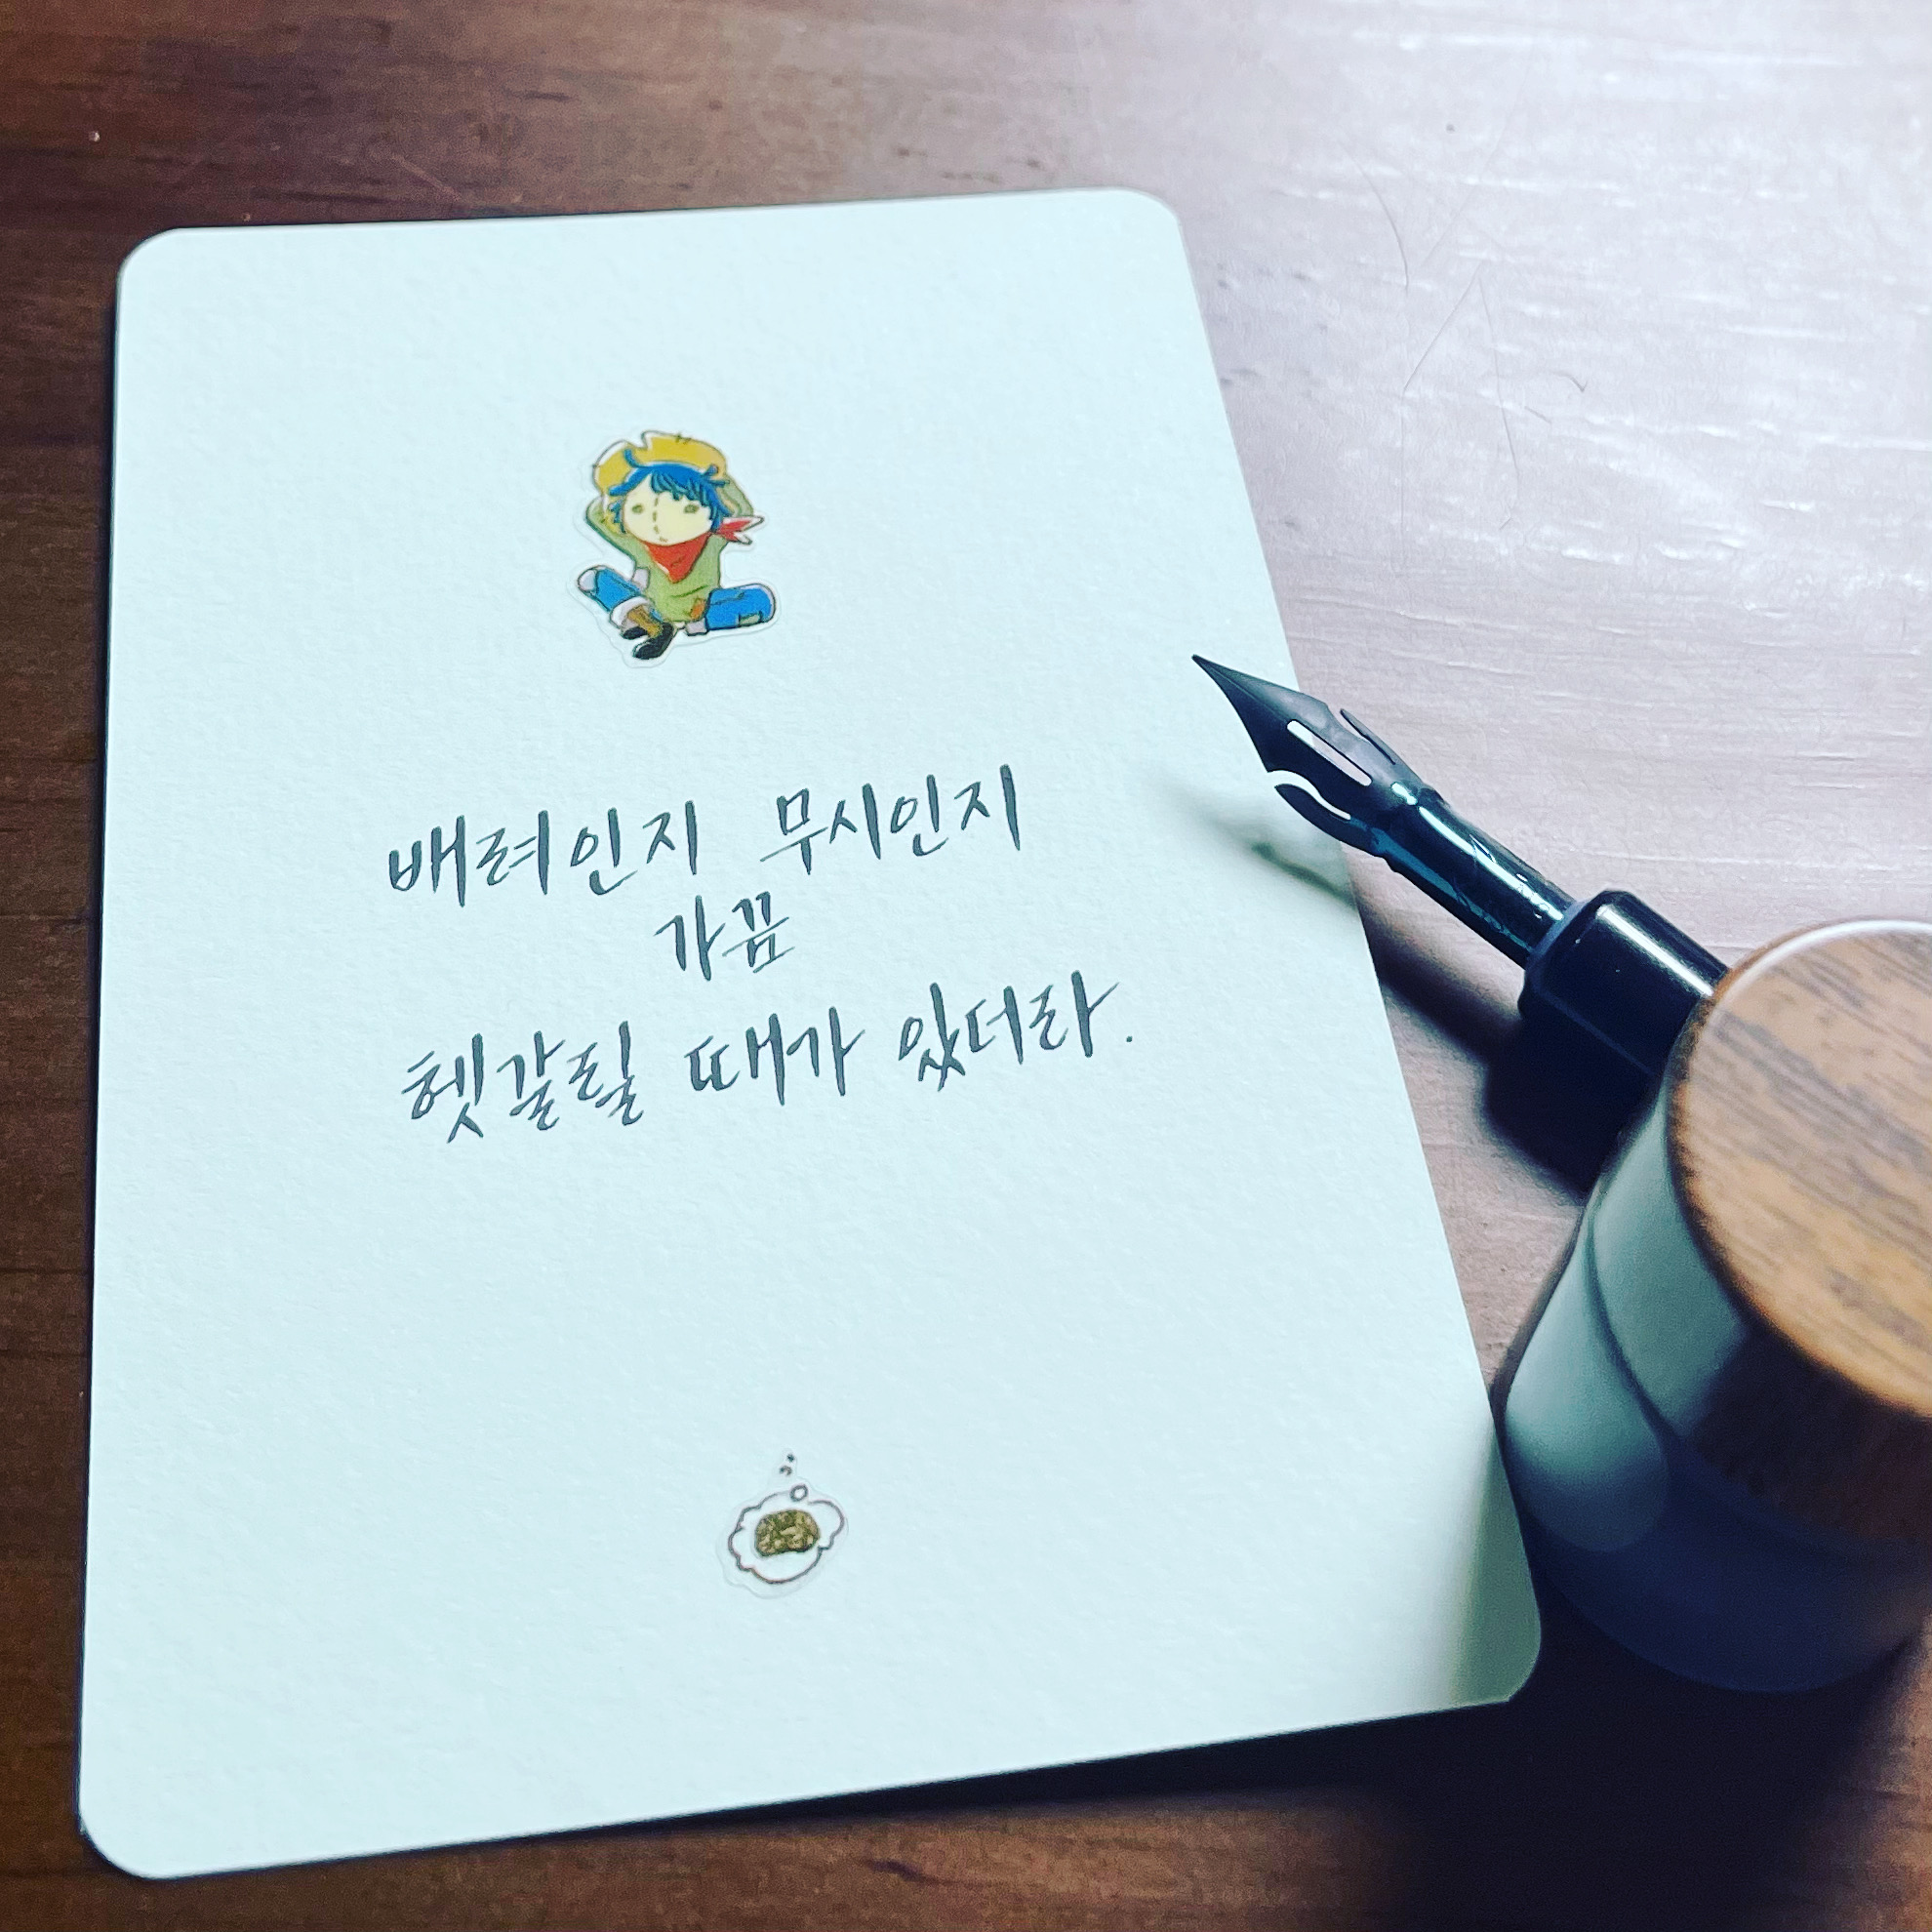 배려인지 무시인지
가끔
헷갈릴 때가 있더라.